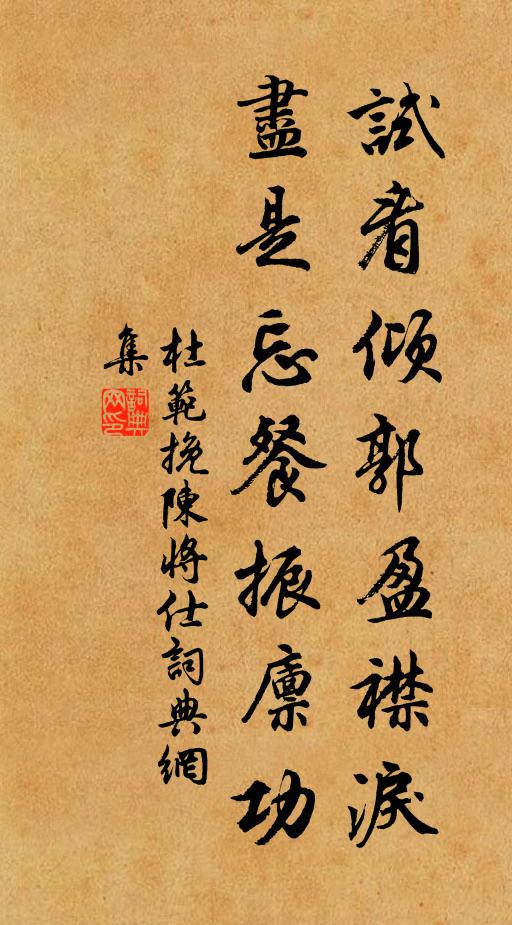 試看傾郭盈襟淚
盡是忘餐振廪功
杜範挽陳將仕詞典網
集
詞典
网印